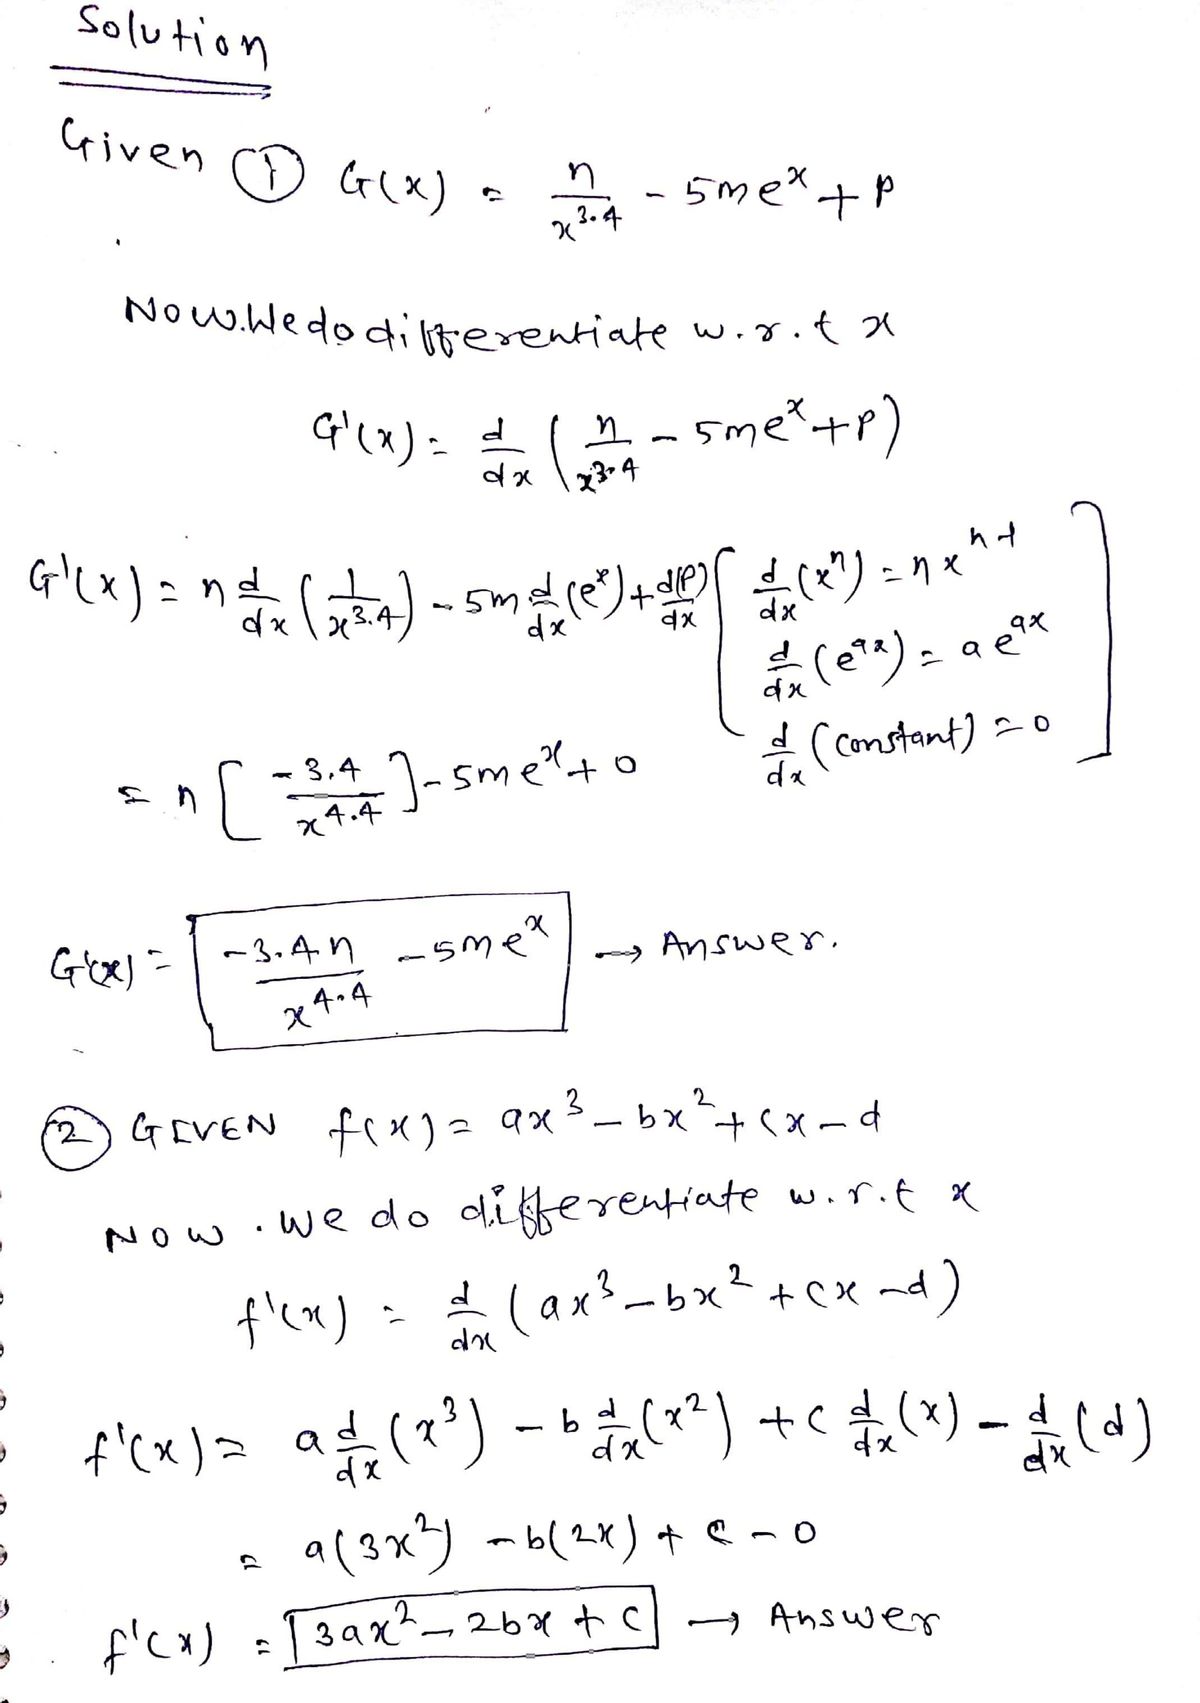 Solution
Given ① G(x) = n/x^3.4 - 5me^x + p
Now. We do differentiate w.r.t x
G'(x) = d/dx (n/x^3.4 - 5me^x + p)
G'(x) = n d/dx (1/x^3.4) - 5m d/dx (e^x) + d(p)/dx [d/dx (x^n) = nx^n-1
d/dx (e^ax) = a e^ax
d/dx (constant) = 0]
= n [-3.4/x^4.4] - 5me^x + 0
G'(x) = -3.4n/x^4.4 - 5me^x → Answer.
② GIVEN f(x) = ax^3 - bx^2 + cx - d
NOW . We do differentiate w.r.t x
f'(x) = d/dx (ax^3 - bx^2 + cx - d)
f'(x) = a d/dx (x^3) - b d/dx (x^2) + c d/dx (x) - d/dx (d)
= a(3x^2) - b(2x) + c - 0
f'(x) = 3ax^2 - 2bx + c → Answer